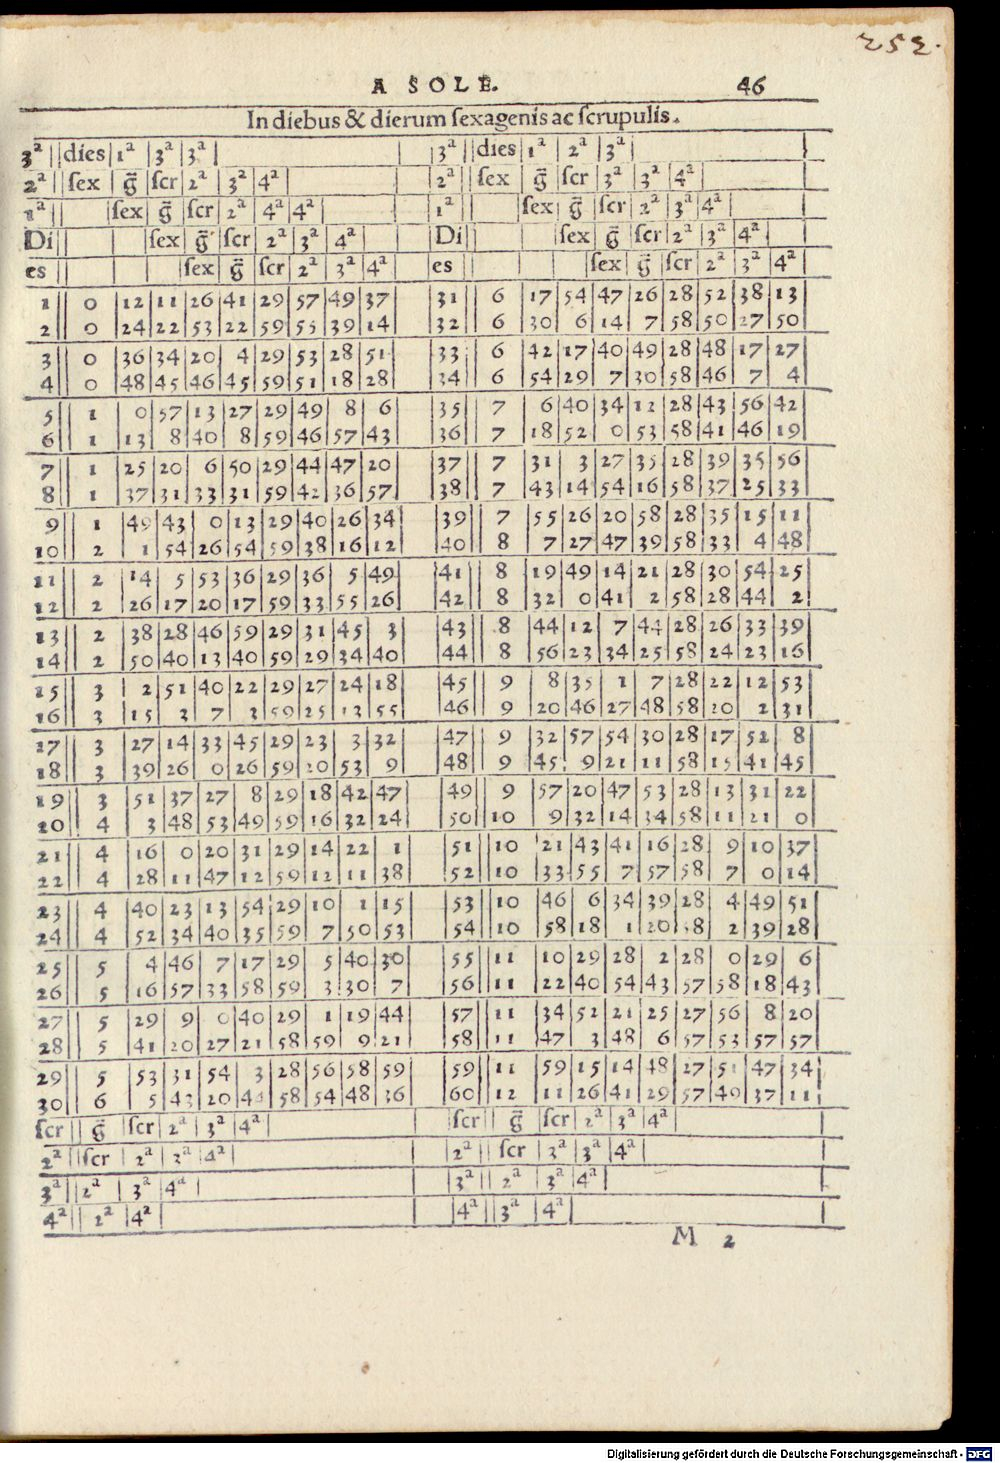 252.
A SOLE. 46
In diebus & dierum ſexagenis ac ſcrupulis.
3ª dies 1ª 3ª 3ª 3ª dies 1ª 2ª 3ª
2ª ſex g̈ ſcr 2ª 3ª 4ª 2ª ſex g̈ ſcr 3ª 3ª 4ª
1ª ſex g̈ ſcr 2ª 4ª 4ª 1ª ſex g̈ ſcr 2ª 3ª 4ª
Di ſex g̈ ſcr 2ª 3ª 4ª Di ſex g̈ ſcr 2ª 3ª 4ª
es ſex g̈ ſcr 2ª 3ª 4ª es ſex g̈ ſcr 2ª 3ª 4ª
1 0 12 11 26 41 29 57 49 37 31 6 17 54 47 26 28 52 38 13
2 0 24 22 53 22 59 55 39 14 32 6 30 6 14 7 58 50 27 50
3 0 36 34 20 4 29 53 28 51 33 6 42 17 40 49 28 48 17 27
4 0 48 45 46 45 59 51 18 28 34 6 54 29 7 30 58 46 7 4
5 1 0 57 13 27 29 49 8 6 35 7 6 40 34 12 28 43 56 42
6 1 13 8 40 8 59 46 57 43 36 7 18 52 0 53 58 41 46 19
7 1 25 20 6 50 29 44 47 20 37 7 31 3 27 35 28 39 35 56
8 1 37 31 33 31 59 42 36 57 38 7 43 14 54 16 58 37 25 33
9 1 49 43 0 13 29 40 26 34 39 7 55 26 20 58 28 35 15 11
10 2 1 54 26 54 59 38 16 12 40 8 7 27 47 39 58 33 4 48
11 2 14 5 53 36 29 36 5 49 41 8 19 49 14 21 28 30 54 25
12 2 26 17 20 17 59 33 55 26 42 8 32 0 41 2 58 28 44 2
13 2 38 28 46 59 29 31 45 3 43 8 44 12 7 44 28 26 33 39
14 2 50 40 13 40 59 29 34 40 44 8 56 23 34 25 58 24 23 16
15 3 2 51 40 22 29 27 24 18 45 9 8 35 1 7 28 22 12 53
16 3 15 3 7 3 59 25 13 55 46 9 20 46 27 48 58 20 2 31
17 3 27 14 33 45 29 23 3 32 47 9 32 57 54 30 28 17 52 8
18 3 39 26 0 26 59 20 53 9 48 9 45 9 21 11 58 15 41 45
19 3 51 37 27 8 29 18 42 47 49 9 57 20 47 53 28 13 31 22
20 4 3 48 53 49 59 16 32 24 50 10 9 32 14 34 58 11 21 0
21 4 16 0 20 31 29 14 22 1 51 10 21 43 41 16 28 9 10 37
22 4 28 11 47 12 59 12 11 38 52 10 33 55 7 57 58 7 0 14
23 4 40 23 13 54 29 10 1 15 53 10 46 6 34 39 28 4 49 51
24 4 52 34 40 35 59 7 50 53 54 10 58 18 1 20 58 2 39 28
25 5 4 46 7 17 29 5 40 30 55 11 10 29 28 2 28 0 29 6
26 5 16 57 33 58 59 3 30 7 56 11 22 40 54 43 57 58 18 43
27 5 29 9 0 40 29 1 19 44 57 11 34 52 21 25 27 56 8 20
28 5 41 20 27 21 58 59 9 21 58 11 47 3 48 6 57 53 57 57
29 5 53 31 54 3 28 56 58 59 59 11 59 15 14 48 27 51 47 34
30 6 5 43 20 44 58 54 48 36 60 12 11 26 41 29 57 49 37 11
ſcr g̈ ſcr 2ª 3ª 4ª ſcr g̈ ſcr 2ª 3ª 4ª
2ª ſcr 2ª 3ª 4ª 2ª ſcr 3ª 3ª 4ª
3ª 2ª 3ª 4ª 3ª 2ª 3ª 4ª
4ª 2ª 4ª 4ª 3ª 4ª
M 2
Digitalisierung gefördert durch die Deutsche Forschungsgemeinschaft - DFG